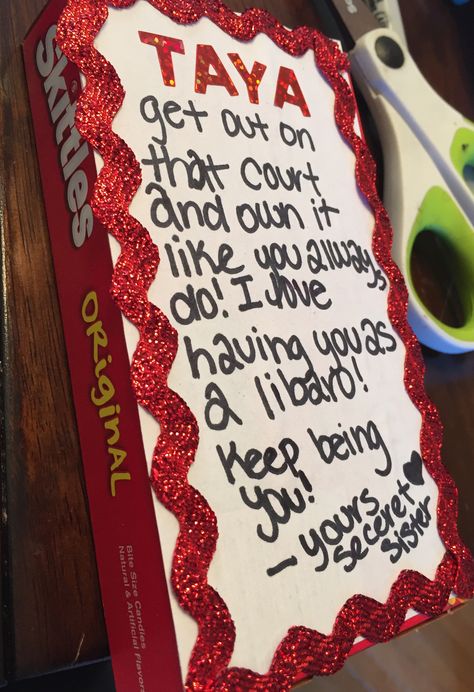 Skittles
ORIGINAL
Bite Size Candies
Natural & Artificial Flavors
TAYA
get out on
that court
and own it
like you allways
do! I love
having you as
a libaro!
Keep being
you!
- yours
seceret
sister